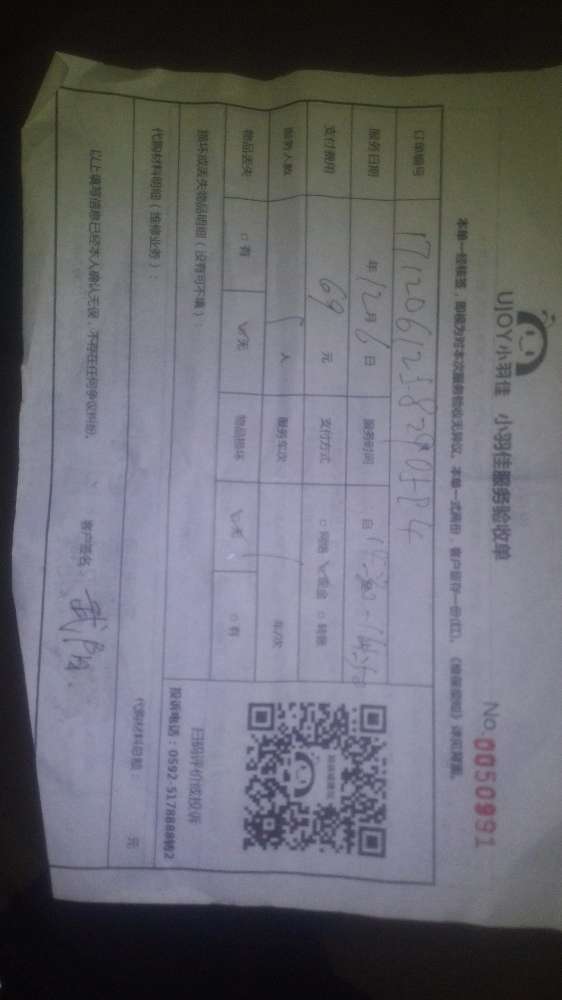 UJOY小羽佳 小羽佳服务验收单
NO. 0050991
本单一经核签，即视为对本次服务验收无异议，本单一式两份，客户留存一份(红)，
订单编号
服务日期 年12月6日 服务时间 自
支付费用 69 元 支付方式 ○网络 ✓现金 ○转账
服务人数 人 服务车次 车/次
物品丢失 ○有 ✓无 物品损坏 ✓无 ○有
损坏或丢失物品明细（没有可不填）：
扫码评价或投诉
投诉电话：0592-5178888转2
代购材料明细（维修业务）：
代购材料总额： 元
以上填写信息已经本人确认无误，不存在任何争议纠纷。
客户签名：